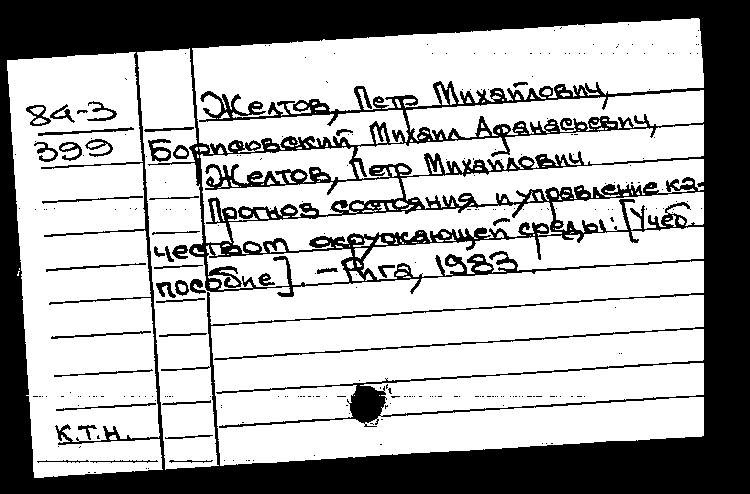 84-3
399
Желтов, Петр Михайлович,
Борисовский, Михаил Афанасьевич,
Желтов, Петр Михайлович.
Прогноз состояния и управление ка-
чеством окружающей среды: [Учеб.
пособие]. - Рига, 1983.
К.Т.Н.